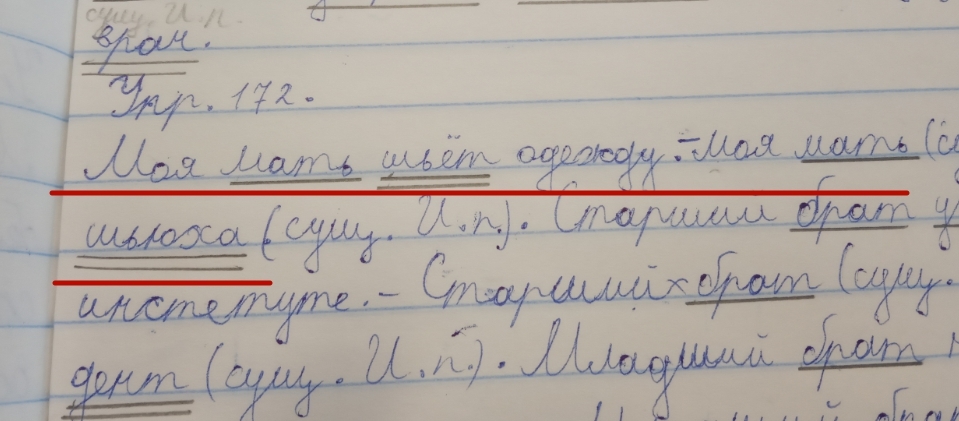 сущ. И.п.
врач.
Упр. 172.
Моя мать шьёт одежду. - Моя мать (с
шьюха (сущ. И.п.). Старший брат у
инстетуте. - Старший брат (сущ.
дент (сущ. И.п.). Младший брат
брат